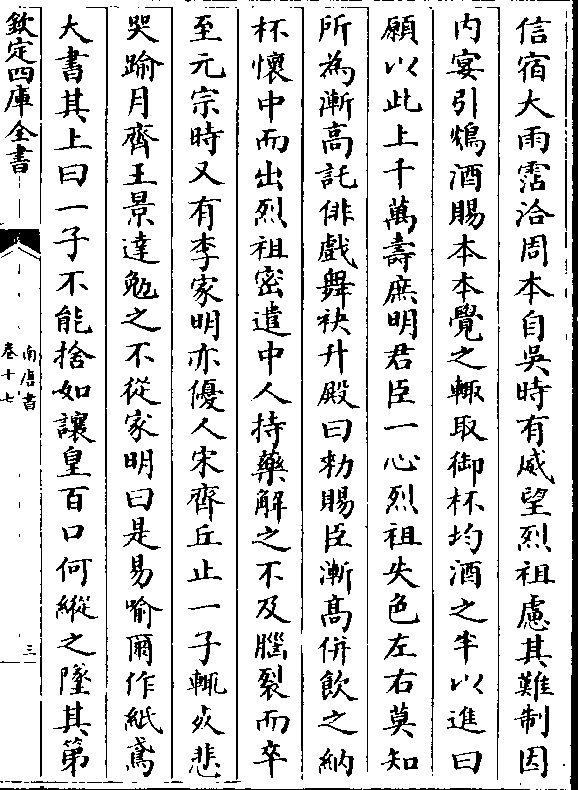 信宿大雨霑洽周本自吳時有威望烈祖慮其難制因
内宴引鴆酒賜本本覺之輒取御杯均酒之半以進曰
願以此上千萬壽庶明君臣一心烈祖失色左右莫知
所為漸高託俳戲舞袂升殿曰勅賜臣漸高併飲之納
杯懷中而出烈祖密遣中人持藥解之不及腦裂而卒
至元宗時又有李家明亦優人宋齊丘止一子輒死悲
哭踰月齊王景達勉之不從家明曰是易喻爾作紙鳶
大書其上曰一子不能捨如讓皇百口何縱之墜其第
欽定四庫全書
南唐書
卷十七
三